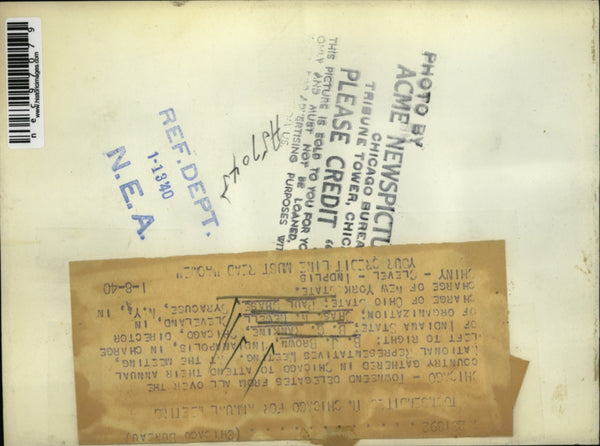 www.historicimages.com
nec97879
REF. DEPT.
1-13'40
N.E.A.
PHOTO BY
ACME NEWSPICTU
CHICAGO BUREA
TRIBUNE TOWER, CHIC
PLEASE CREDIT "
THIS PICTURE IS SOLD TO YOU FOR YO
ONLY AND MUST NOT BE LOANED,
ADVERTISING PURPOSES WI
(CHICAGO BUREAU)
IN CHICAGO FOR ANNUAL MEETING
CHICAGO - TOWNSEND DELEGATES FROM ALL OVER THE
COUNTRY GATHERED IN CHICAGO TO ATTEND THEIR ANNUAL
NATIONAL REPRESENTATIVES MEETING. AT THE MEETING,
LEFT TO RIGHT: B. J. BROWN, INDIANAPOLIS, IN CHARGE
OF INDIANA STATE; CHICAGO, DIRECTOR
OF ORGANIZATION; CLEVELAND, IN
CHARGE OF OHIO STATE; PAUL SYRACUSE, N.Y., IN
CHARGE OF NEW YORK STATE.
CHINY - CLEVEL - INDPLIS
YOUR CREDIT LINE MUST READ "ACME"
1-8-40